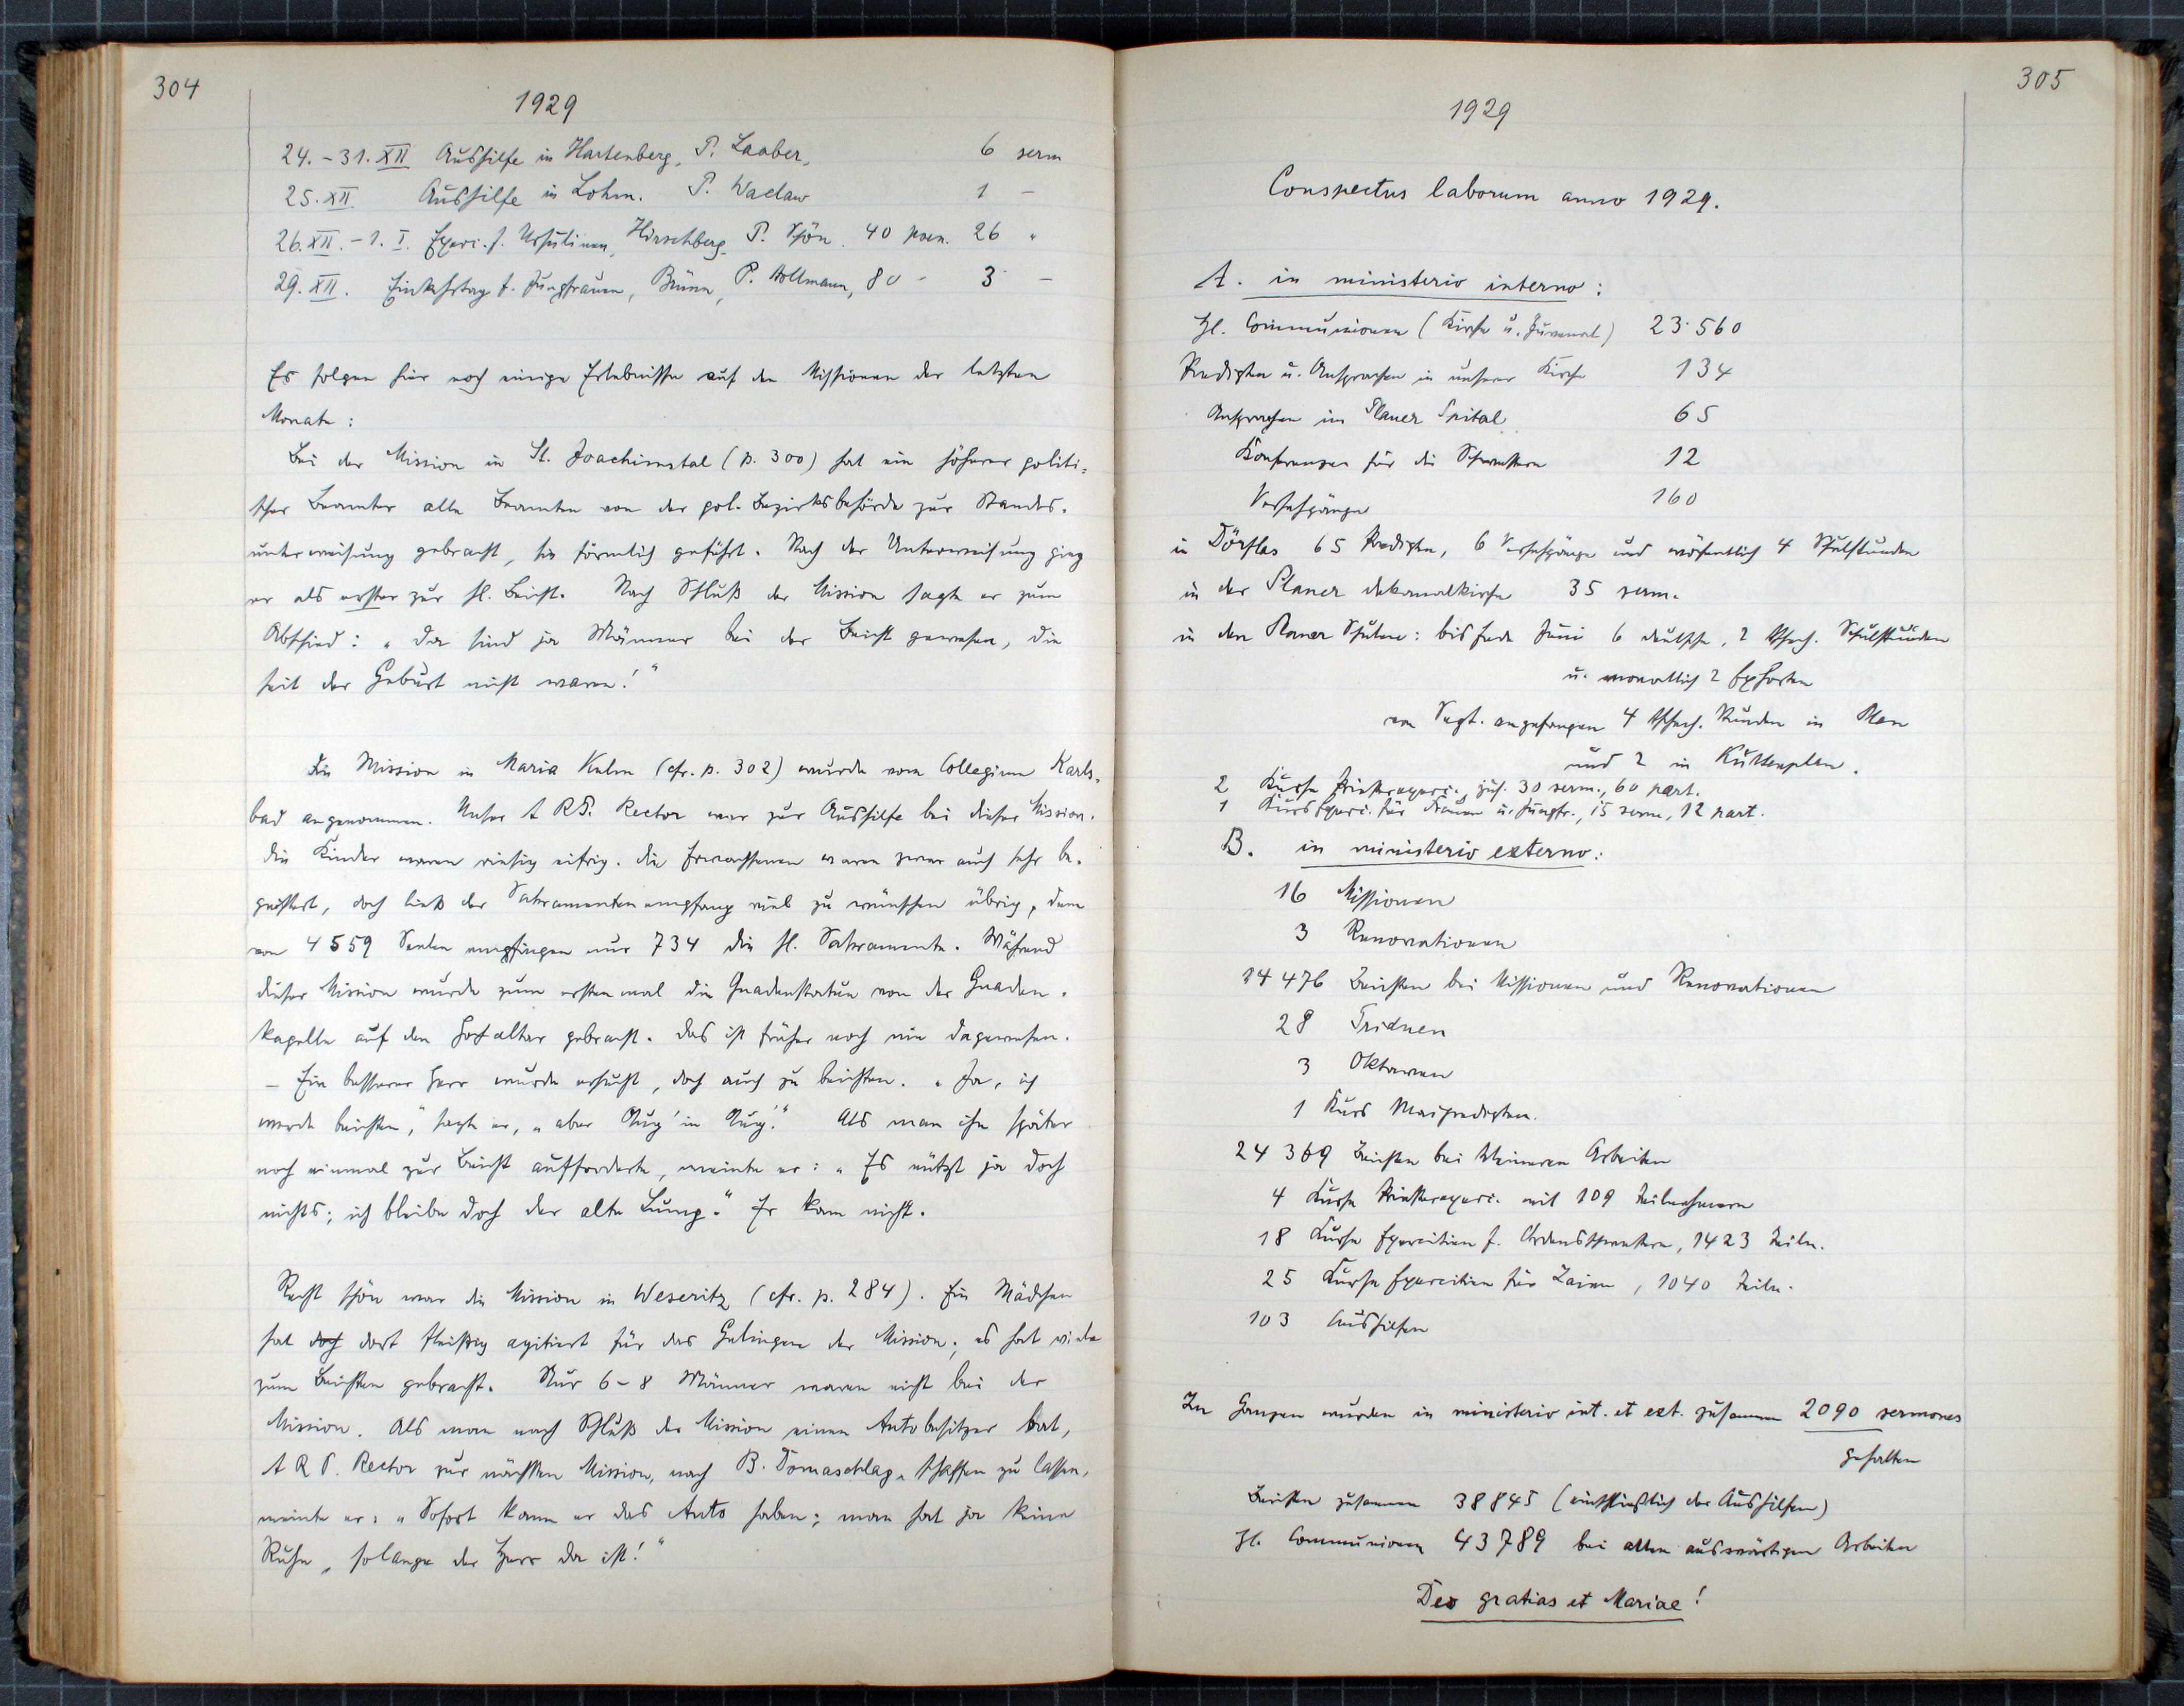 304
1929
24.-31. XII Aushilfe in Hartenberg, P. Laaber, 6 serm
25. XII Aushilfe in Lohm. P. Waclaw 1 –
26. XII. - 1. I. Exerc. f. Ursulinen, Hirschberg. P. Schön. 40 poen. 26 "
29. XII. Einkehrtag f. Jungfrauen, Brünn, P. Wollmann, 80 – 3 –
Es folgen hier noch einige Erlebnisse auf den Missionen der letzten
Monate:
Bei der Mission in St. Joachimstal (p. 300) hat ein höherer politi=
scher Beamter alle Beamten von der pol. Bezirksbehörde zur Standes=
unterweisung gebracht, sie förmlich geführt. Nach der Unterweisung ging
er als erster zur hl. Beicht. Nach Schluß der Mission sagte er zum
Abschied: „Da sind ja Männer bei der Beicht gewesen, die
seit der Geburt nicht waren!“
Die Mission in Maria Kulm (cfr. p. 302) wurde vom Collegium Karls=
bad angenommen. Unser A R P. Rector war zur Aushilfe bei dieser Mission.
Die Kinder waren riesig eifrig. Die Erwachsenen waren zwar auch sehr be=
geistert, doch ließ der Sakramentenempfang viel zu wünschen übrig, denn
von 4559 Seelen empfingen nur 734 die hl. Sakramente. Während
dieser Mission wurde zum erstenmal die Gnadenstatue von der Gnaden=
kapelle auf den Hochaltar gebracht. Das ist früher noch nie dagewesen.
– Ein besserer Herr wurde ersucht, doch auch zu beichten. „Ja, ich
werde beichten,“ sagte er, „aber Aug' in Aug'.“ Als man ihn später
noch einmal zur Beicht aufforderte, meinte er: „Es nützt ja doch
nichts; ich bleibe doch der alte Lump.“ Er kam nicht.
Recht schön war die Mission in Weseritz (cfr. p. 284). Ein Mädchen
hat doch dort fleißig agitiert für das Gelingen der Mission; es hat viele
zum Beichten gebracht. Nur 6-8 Männer waren nicht bei der
Mission. Als man nach Schluß der Mission einen Autobesitzer bat,
A R P. Rector zur nächsten Mission, nach B. Domaschlag, schaffen zu lassen,
meinte er: „Sofort kann er das Auto haben; man hat ja keine
Ruhe, solange der Herr da ist!“
305
1929
Conspectus laborum anno 1929.
A. in ministerio interno:
Hl. Communionen (Kirche u. Juvenat) 23·560
Predigten u. Ansprachen in unserer Kirche 134
Ansprachen im Planer Spital 65
Konferenzen für die Schwestern 12
Versehgänge 160
in Dörflas 65 Predigten, 6 Versehgänge und wöchentlich 4 Schulstunden
in der Planer Dekanalkirche 35 serm.
in den Planer Schulen: bis Ende Juni 6 deutsche, 2 tschech. Schulstunden
u. monatlich 2 Exhorten
von Sept. angefangen 4 tschech. Stunden in Plan
und 2 in Kuttenplan.
2 Kurse Priesterexerc., zus. 30 serm., 60 part.
1 Kurs Exerc. für Frauen u. Jungfr., 15 serm, 12 part.
B. in ministerio externo:
16 Missionen
3 Renovationen
14 476 Beichten bei Missionen und Renovationen
28 Triduen
3 Oktaven
1 Kurs Maipredigten.
24 369 Beichten bei kleineren Arbeiten
4 Kurse Priesterexerc. mit 109 Teilnehmern
18 Kurse Exercitien f. Ordensschwestern, 1423 Teiln.
25 Kurse Exercitien für Laien, 1040 Teiln.
103 Aushilfen
Im Ganzen wurden in ministerio int. et ext. zusammen 2090 sermones
gehalten
Beichten zusammen 38845 (einschließlich der Aushilfen)
Hl. Communionen 43789 bei allen auswärtigen Arbeiten
Deo gratias et Mariae!